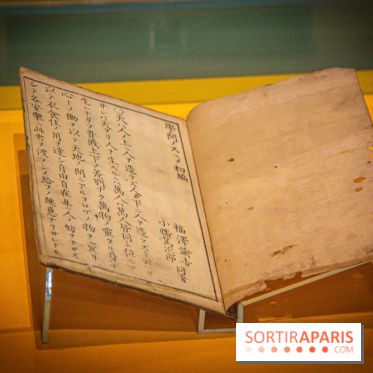 學問ノスヽメ 初編
福澤諭吉 同著
小幡篤次郎
天ハ人ノ上ニ人ヲ造ラズ人ノ下ニ人ヲ造ラズト云ヘリ
サレバ天ヨリ人ヲ生ズルニハ萬人ハ萬人皆同ジ位ニシテ
生レナガラ貴賤上下ノ差別ナク萬物ノ靈タル身ト
心トノ働ヲ以テ天地ノ間ニアルヨロヅノ物ヲ資リ
以テ衣食住ノ用ヲ達シ自由自在互ニ人ノ妨ヲナサズ
シテ各安樂ニ此世ヲ渡ラシメ給フノ趣意ナリサレドモ
SORTIRAPARIS
.COM